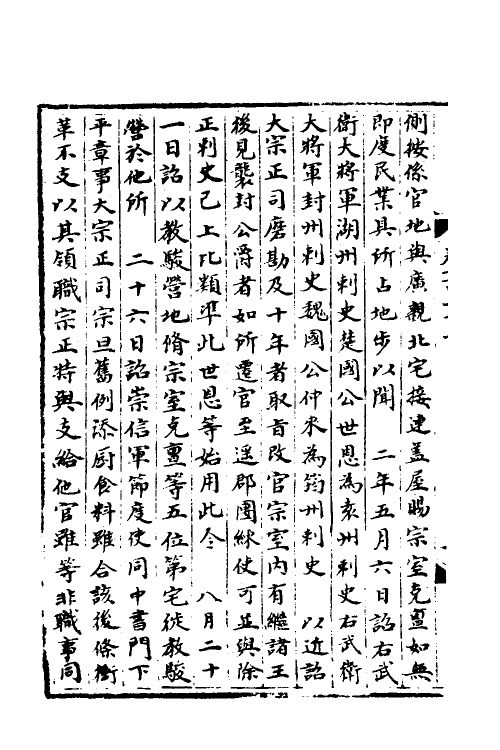 側按係官地與廣親北宅接連蓋屋賜宗室克亶如無
即度民業具所占地步以聞　二年五月六日詔右武
衛大將軍湖州刺史楚國公世恩為袁州刺史右武衛
大將軍封州刺史魏國公仲來為筠州刺史　以近詔
大宗正司磨勘及十年者取旨改官宗室内有繼諸王
後見襲封公爵者如所遷官至遙郡團練使可並與除
正刺史已上比類準此世恩等始用此令　八月二十
一日詔以教駿營地脩宗室克亶等五位第宅徙教駿
營於他所　二十六日詔崇信軍節度使同中書門下
平章事大宗正司宗旦舊例添厨食料雖合該後條衝
革不支以其領職宗正特與支給他官雖等非職事同